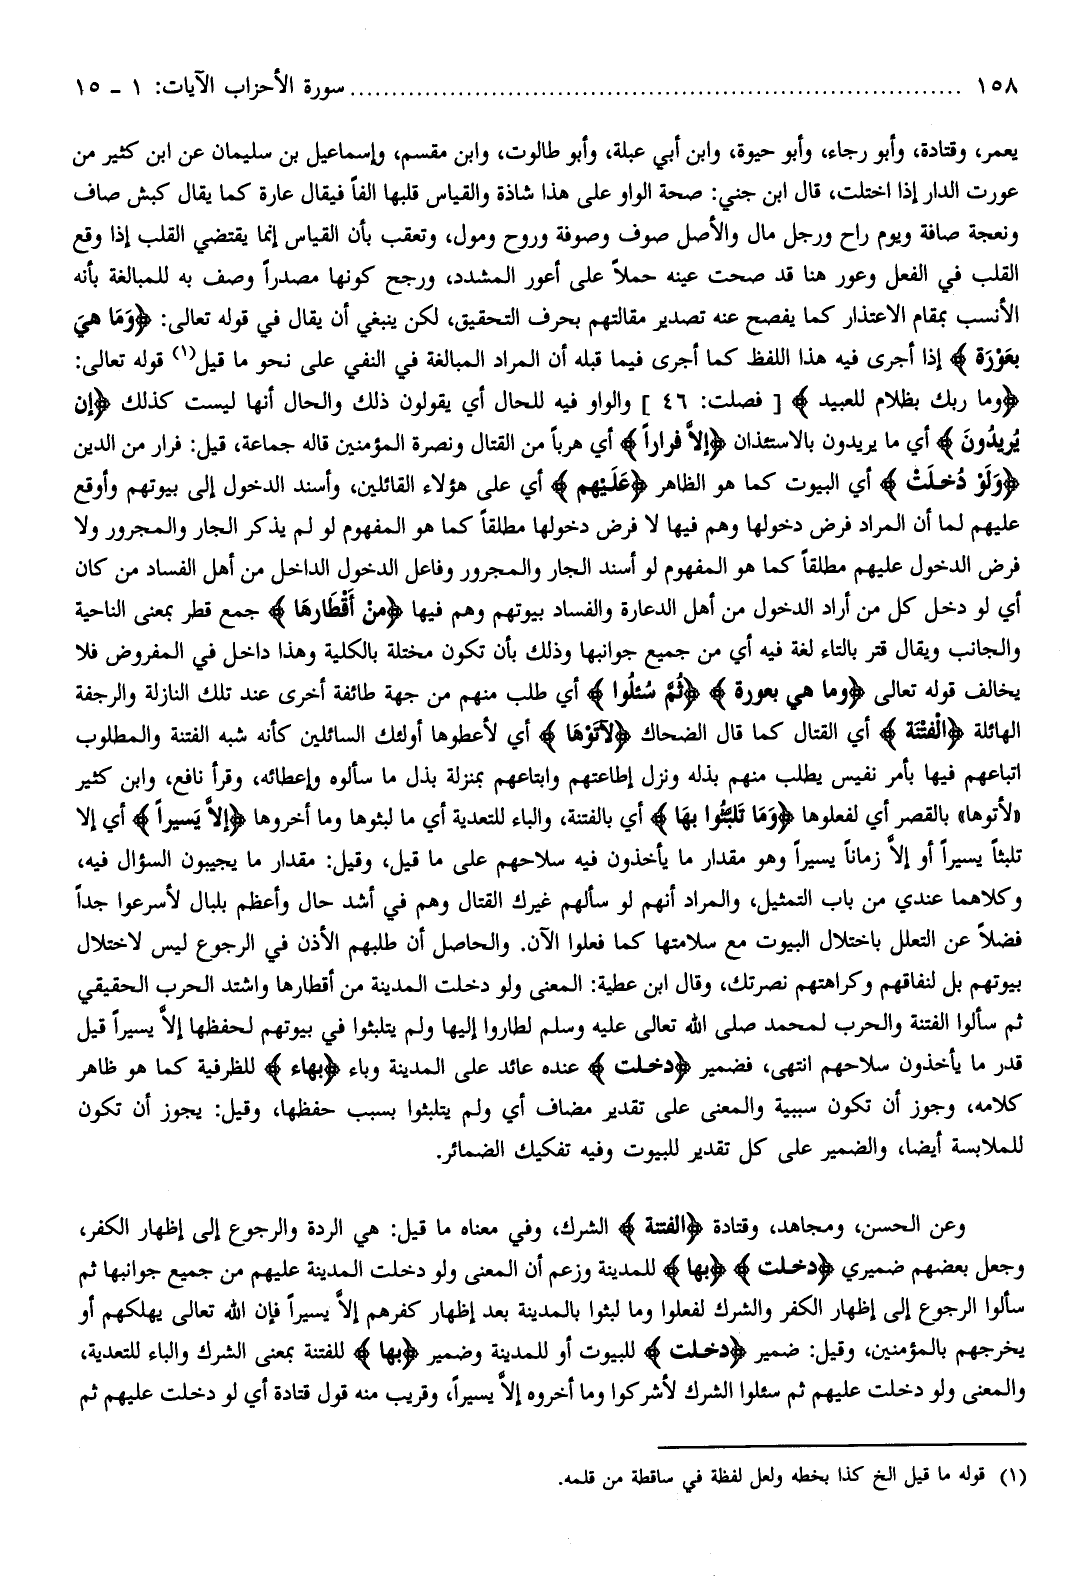 ١٥٨ ........................................................................... سورة الأحزاب الآيات: ١ - ١٥
يعمر، وقتادة، وأبو رجاء، وأبو حيوة، وابن أبي عبلة، وأبو طالوت، وابن مقسم، وإسماعيل بن سليمان عن ابن كثير من
عورت الدار إذا اختلت، قال ابن جني: صحة الواو على هذا شاذة والقياس قلبها الفاً فيقال عارة كما يقال كبش صاف
ونعجة صافة ويوم راح ورجل مال والأصل صوف وصوفة وروح ومول، وتعقب بأن القياس إنما يقتضي القلب إذا وقع
القلب في الفعل وعور هنا قد صحت عينه حملاً على أعور المشدد، ورجح كونها مصدراً وصف به للمبالغة بأنه
الأنسب بمقام الاعتذار كما يفصح عنه تصدير مقالتهم بحرف التحقيق، لكن ينبغي أن يقال في قوله تعالى: ﴿وَمَا هيَ
بعَوْرَة﴾ إذا أجرى فيه هذا اللفظ كما أجرى فيما قبله أن المراد المبالغة في النفي على نحو ما قيل(١) قوله تعالى:
﴿وما ربك بظلام للعبيد﴾ [ فصلت: ٤٦ ] والواو فيه للحال أي يقولون ذلك والحال أنها ليست كذلك ﴿إن
يُريدُونَ﴾ أي ما يريدون بالاستئذان ﴿إلاَّ فراراً﴾ أي هرباً من القتال ونصرة المؤمنين قاله جماعة، قيل: فرار من الدين
﴿وَلَوْ دُخلَتْ﴾ أي البيوت كما هو الظاهر ﴿عَلَيْهم﴾ أي على هؤلاء القائلين، وأسند الدخول إلى بيوتهم وأوقع
عليهم لما أن المراد فرض دخولها وهم فيها لا فرض دخولها مطلقاً كما هو المفهوم لو لم يذكر الجار والمجرور ولا
فرض الدخول عليهم مطلقاً كما هو المفهوم لو أسند الجار والمجرور وفاعل الدخول الداخل من أهل الفساد من كان
أي لو دخل كل من أراد الدخول من أهل الدعارة والفساد بيوتهم وهم فيها ﴿منْ أَقْطَارهَا﴾ جمع قطر بمعنى الناحية
والجانب ويقال قتر بالتاء لغة فيه أي من جميع جوانبها وذلك بأن تكون مختلة بالكلية وهذا داخل في المفروض فلا
يخالف قوله تعالى ﴿وما هي بعورة﴾ ﴿ثُمَّ سُئلُوا﴾ أي طلب منهم من جهة طائفة أخرى عند تلك النازلة والرجفة
الهائلة ﴿الْفتْنَة﴾ أي القتال كما قال الضحاك ﴿لآتَوْهَا﴾ أي لأعطوها أولئك السائلين كأنه شبه الفتنة والمطلوب
اتباعهم فيها بأمر نفيس يطلب منهم بذله ونزل إطاعتهم وابتاعهم بمنزلة بذل ما سألوه وإعطائه، وقرأ نافع، وابن كثير
«لأتوها» بالقصر أي لفعلوها ﴿وَمَا تَلَبَّثُوا بهَا﴾ أي بالفتنة، والباء للتعدية أي ما لبثوها وما أخروها ﴿إلاَّ يَسيراً﴾ أي إلا
تلبثاً يسيراً أو إلاَّ زماناً يسيراً وهو مقدار ما يأخذون فيه سلاحهم على ما قيل، وقيل: مقدار ما يجيبون السؤال فيه،
وكلاهما عندي من باب التمثيل، والمراد أنهم لو سألهم غيرك القتال وهم في أشد حال وأعظم بلبال لأسرعوا جداً
فضلاً عن التعلل باختلال البيوت مع سلامتها كما فعلوا الآن. والحاصل أن طلبهم الأذن في الرجوع ليس لاختلال
بيوتهم بل لنفاقهم وكراهتهم نصرتك، وقال ابن عطية: المعنى ولو دخلت المدينة من أقطارها واشتد الحرب الحقيقي
ثم سألوا الفتنة والحرب لمحمد صلى الله تعالى عليه وسلم لطاروا إليها ولم يتلبثوا في بيوتهم لحفظها إلاَّ يسيراً قيل
قدر ما يأخذون سلاحهم انتهى، فضمير ﴿دخلت﴾ عنده عائد على المدينة وباء ﴿بهاء﴾ للظرفية كما هو ظاهر
كلامه، وجوز أن تكون سببية والمعنى على تقدير مضاف أي ولم يتلبثوا بسبب حفظها، وقيل: يجوز أن تكون
للملابسة أيضا، والضمير على كل تقدير للبيوت وفيه تفكيك الضمائر.
وعن الحسن، ومجاهد، وقتادة ﴿الفتنة﴾ الشرك، وفي معناه ما قيل: هي الردة والرجوع إلى إظهار الكفر،
وجعل بعضهم ضميري ﴿دخلت﴾ ﴿بها﴾ للمدينة وزعم أن المعنى ولو دخلت المدينة عليهم من جميع جوانبها ثم
سألوا الرجوع إلى إظهار الكفر والشرك لفعلوا وما لبثوا بالمدينة بعد إظهار كفرهم إلاَّ يسيراً فإن الله تعالى يهلكهم أو
يخرجهم بالمؤمنين، وقيل: ضمير ﴿دخلت﴾ للبيوت أو للمدينة وضمير ﴿بها﴾ للفتنة بمعنى الشرك والباء للتعدية،
والمعنى ولو دخلت عليهم ثم سئلوا الشرك لأشركوا وما أخروه إلاَّ يسيراً، وقريب منه قول قتادة أي لو دخلت عليهم ثم
(١) قوله ما قيل الخ كذا بخطه ولعل لفظة في ساقطة من قلمه.